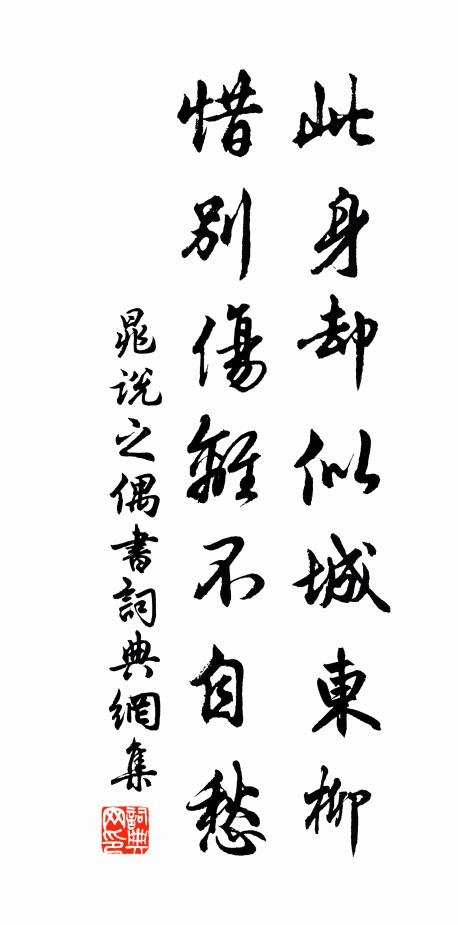 此身却似城東柳
惜別傷離不自愁
晁說之偶書詞典網集
詞典網印